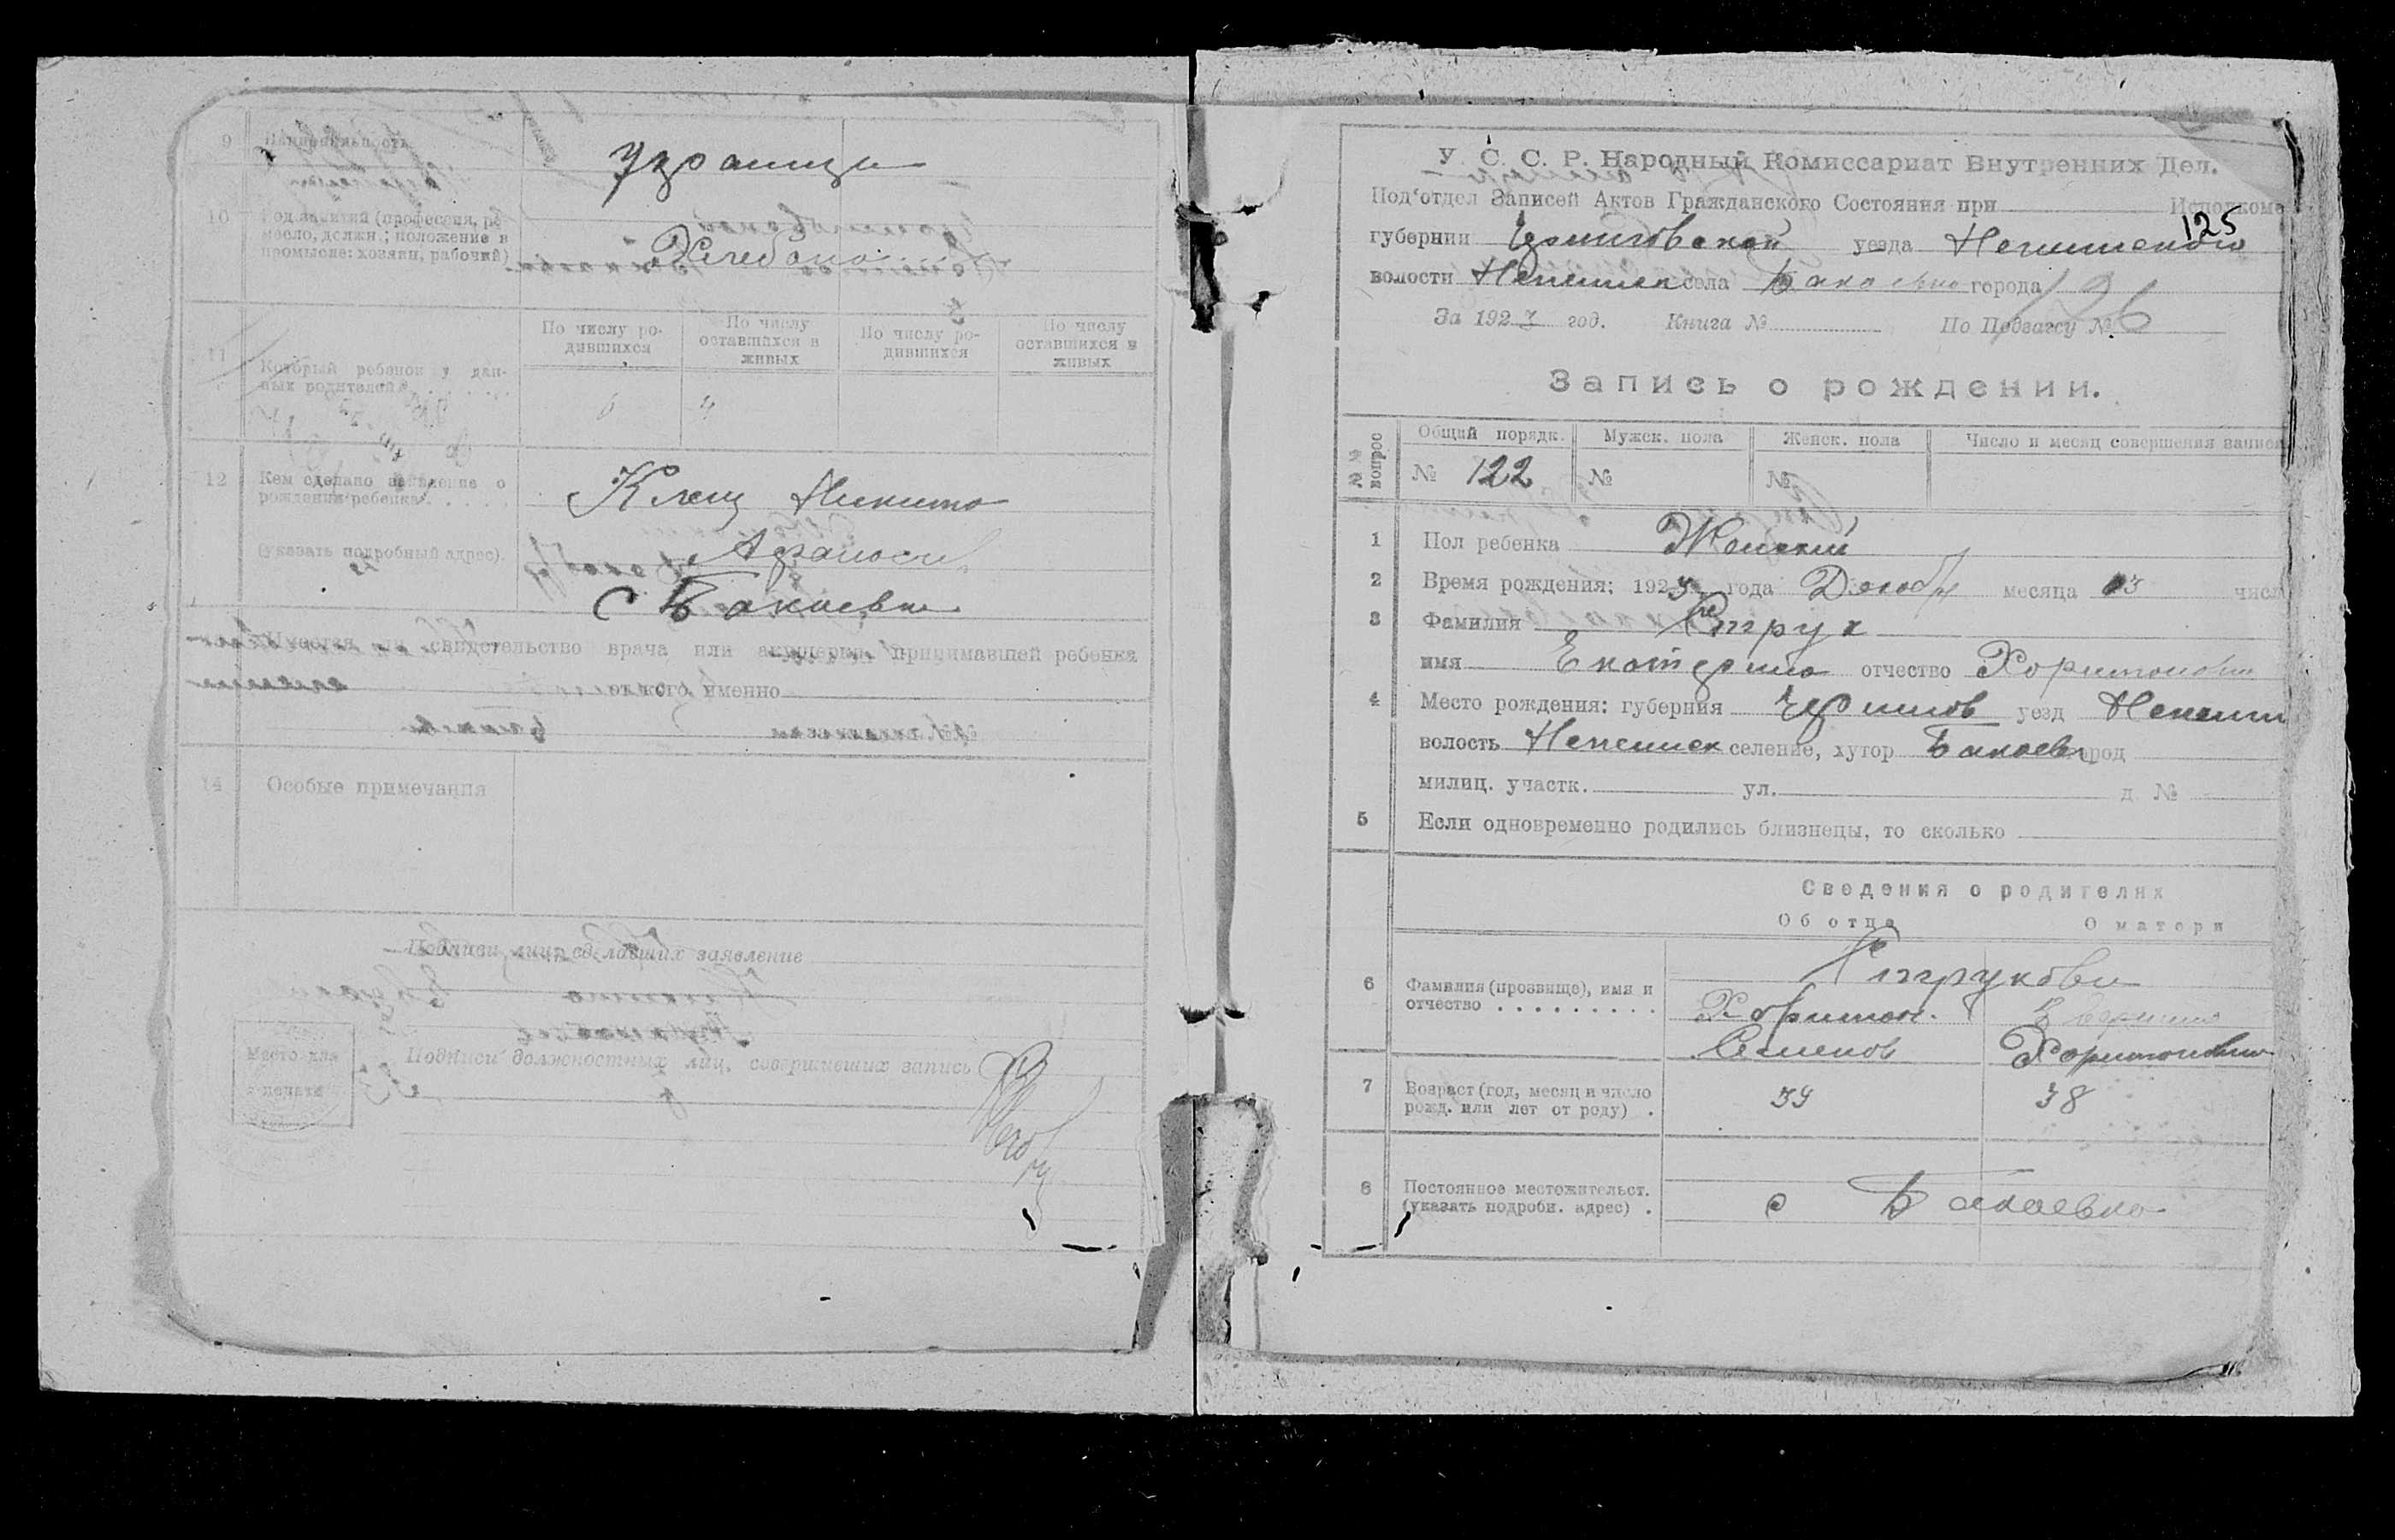 9 Национальность
Украинци
10 Род занятий (професия, ре-
месло, должн.; положение в
промысле: хозяин, рабочий)
Хлебопа
11 Который ребенок у дан-
ных родителей
По числу ро-
дившихся
По числу
оставшихся в
живых
По числу ро-
дившихся
По числу
оставшихся в
живых
4
12 Кем сделано заявление о
рождении ребенка
(указать подробный адрес).
Клец Никита
с Бакаевка
Имеется ли свидетельство врача или акушерки принимавшей ребенка
от кого именно
14 Особые примечания
Подписи лиц, сделавших заявление
Место для
печати
Подписи должностных лиц, совершивших запись
У. С. С. Р. Народный Комиссариат Внутренних Дел.
Под'отдел Записей Актов Гражданского Состояния при Исполкоме
125
губернии Черниговской уезда Нежинского
волости Нежинск села Бакаевка города
126
За 1923 год. Книга № По Подзагсу №
Запись о рождении.
№№ вопрос
Общий порядк. Мужск. пола Женск. пола Число и месяц совершения записи
№ 122 № №
1 Пол ребенка Женский
2 Время рождения: 1923 года Декабр месяца 13 числ
3 Фамилия Струк
имя Екатерина отчество Харитоновна
4 Место рождения: губерния Чернигов уезд Нежин
волость Нежинск селение, хутор Бакаевк город
милиц. участк. ул. д. №
5 Если одновременно родились близнецы, то сколько
Сведения о родителях
Об отце О матери
6 Фамилия (прозвище), имя и
отчество
Струкови
Харитон
Семенов Харитоновна
7 Возраст (год, месяц и число
рожд. или лет от роду) .
39 38
8 Постоянное местожительст.
(указать подробн. адрес) .
с Бакаевка